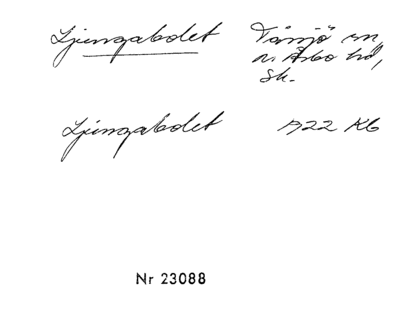 Ljungabolet Tåssjö sn,
n. Åsbo hd,
Sk.
Ljungabolet 1922 KG
Nr 23088